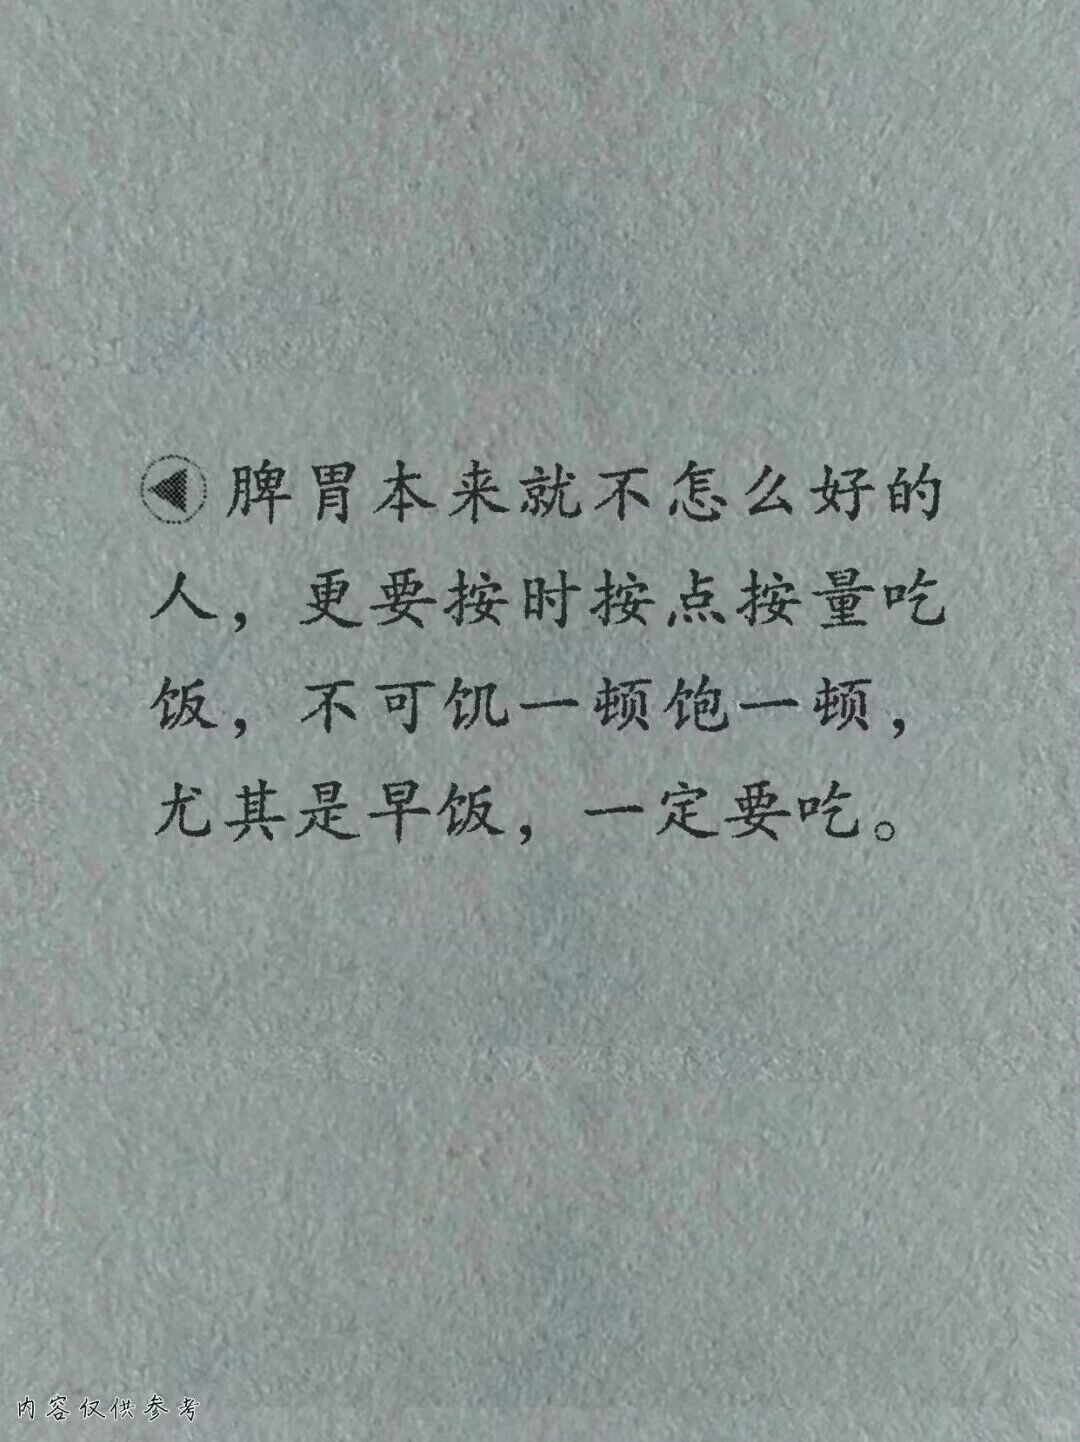 脾胃本来就不怎么好的
人，更要按时按点按量吃
饭，不可饥一顿饱一顿，
尤其是早饭，一定要吃。
内容仅供参考